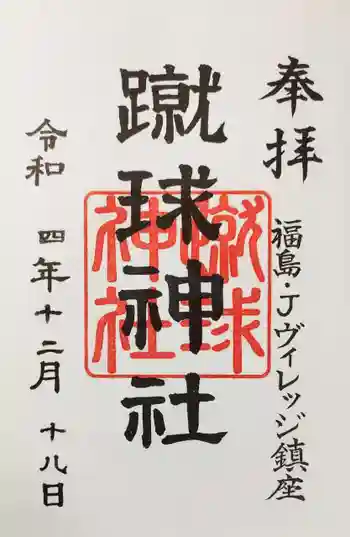 奉拝
福島・Jヴィレッジ鎮座
蹴球神社
蹴球
神社
令和 四年十二月 十八日